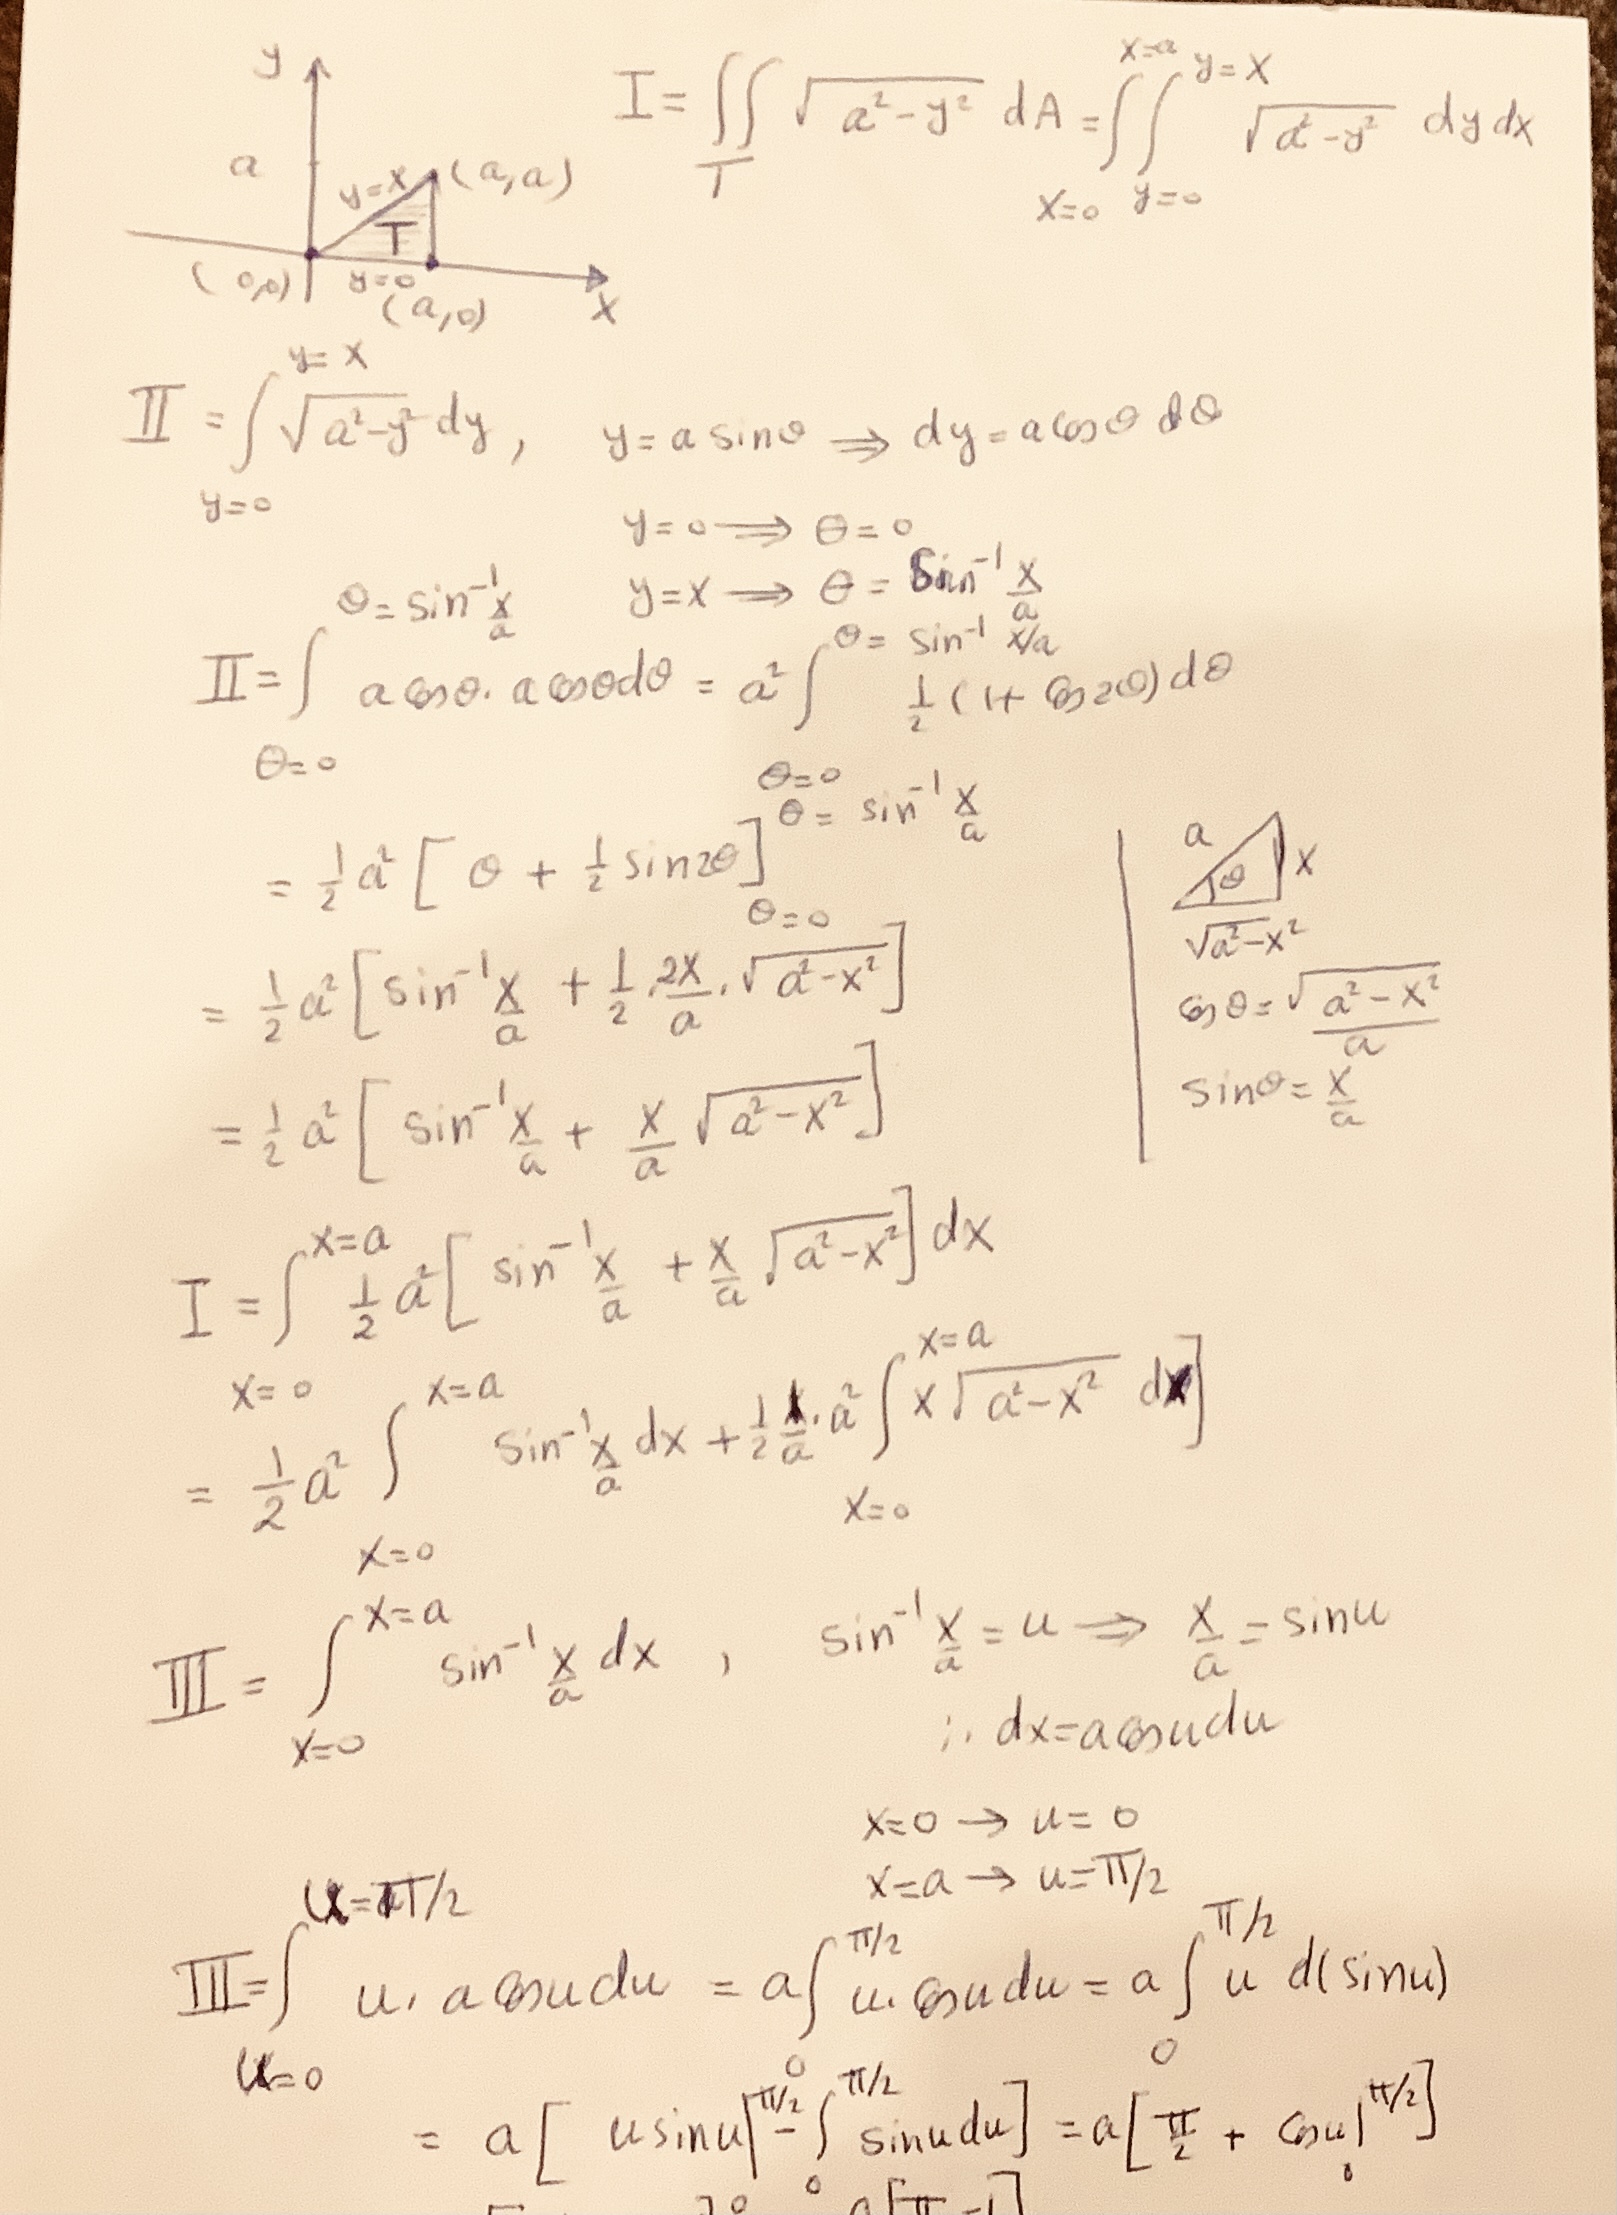 y
a
y=x
(a,a)
T
(0,0)
y=0
(a,0)
x
I = ∬_T √(a²-y²) dA = ∫_{x=0}^{x=a} ∫_{y=0}^{y=x} √(a²-y²) dy dx
II = ∫_{y=0}^{y=x} √(a²-y²) dy , y = a sinθ ⇒ dy = a cosθ dθ
y=0 ⇒ θ=0
y=x ⇒ θ = sin⁻¹ x/a
II = ∫_{θ=0}^{θ=sin⁻¹ x/a} a cosθ · a cosθ dθ = a² ∫_{θ=0}^{θ=sin⁻¹ x/a} 1/2 (1+ cos2θ) dθ
= 1/2 a² [ θ + 1/2 sin2θ ]_{θ=0}^{θ=sin⁻¹ x/a}
= 1/2 a² [ sin⁻¹ x/a + 1/2 · 2x/a · √(a²-x²) ]
= 1/2 a² [ sin⁻¹ x/a + x/a √(a²-x²) ]
a
θ
x
√(a²-x²)
cosθ = √(a²-x²)/a
sinθ = x/a
I = ∫_{x=0}^{x=a} 1/2 a² [ sin⁻¹ x/a + x/a √(a²-x²) ] dx
= 1/2 a² ∫_{x=0}^{x=a} sin⁻¹ x/a dx + 1/2 1/a · a² ∫_{x=0}^{x=a} x √(a²-x²) dx ]
III = ∫_{x=0}^{x=a} sin⁻¹ x/a dx , sin⁻¹ x/a = u ⇒ x/a = sinu
∴ dx = a cosu du
x=0 → u=0
x=a → u=π/2
III = ∫_{u=0}^{u=π/2} u · a cosu du = a ∫_0^{π/2} u · cosu du = a ∫_0^{π/2} u d(sinu)
= a [ u sinu |_0^{π/2} - ∫_0^{π/2} sinu du ] = a [ π/2 + cosu |_0^{π/2} ]